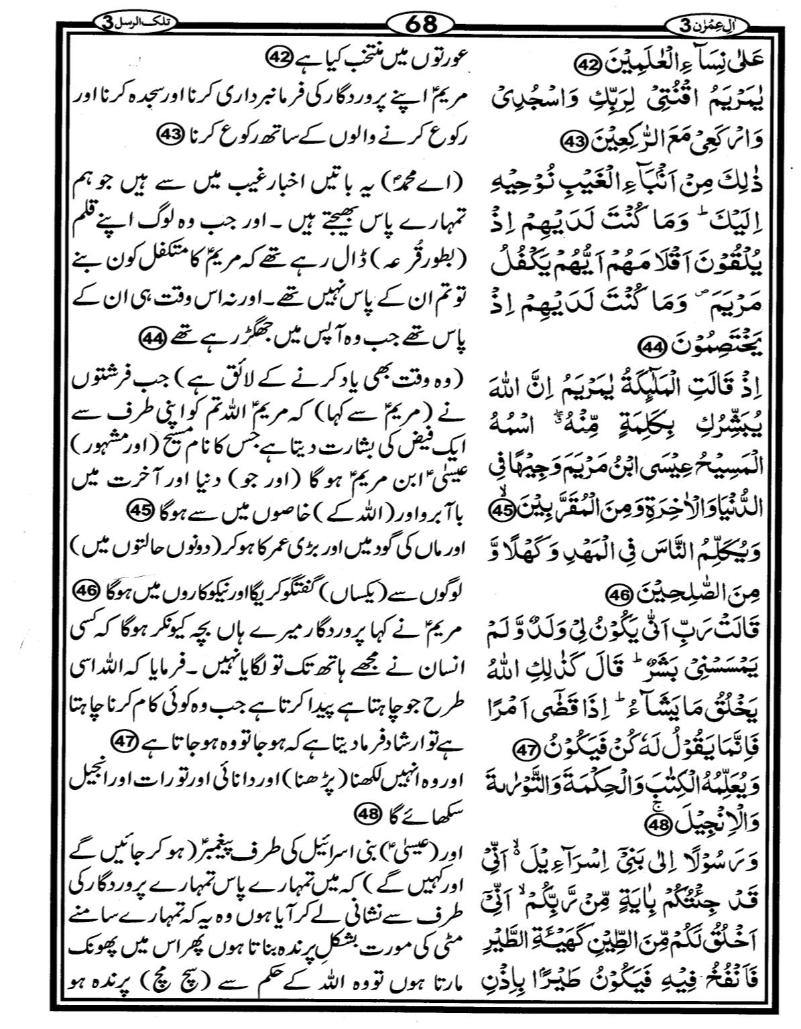 اٰل عِمْرٰن 3
68
تلک الرسل 3
عَلٰی نِسَآءِ الْعٰلَمِیْنَ 42
یٰمَرْیَمُ اقْنُتِیْ لِرَبِّكِ وَاسْجُدِیْ
وَارْكَعِیْ مَعَ الرّٰكِعِیْنَ 43
ذٰلِكَ مِنْ اَنْۢبَآءِ الْغَیْبِ نُوْحِیْهِ
اِلَیْكَ ؕ وَمَا كُنْتَ لَدَیْهِمْ اِذْ
یُلْقُوْنَ اَقْلَامَهُمْ اَیُّهُمْ یَكْفُلُ
مَرْیَمَ ۪ وَمَا كُنْتَ لَدَیْهِمْ اِذْ
یَخْتَصِمُوْنَ 44
اِذْ قَالَتِ الْمَلٰٓئِكَةُ یٰمَرْیَمُ اِنَّ اللّٰهَ
یُبَشِّرُكِ بِكَلِمَةٍ مِّنْهُ ۖۗ اسْمُهُ
الْمَسِیْحُ عِیْسَی ابْنُ مَرْیَمَ وَجِیْهًا فِی
الدُّنْیَا وَالْاٰخِرَةِ وَمِنَ الْمُقَرَّبِیْنَ ۙ 45
وَیُكَلِّمُ النَّاسَ فِی الْمَهْدِ وَكَهْلًا وَّ
مِنَ الصّٰلِحِیْنَ 46
قَالَتْ رَبِّ اَنّٰی یَكُوْنُ لِیْ وَلَدٌ وَّلَمْ
یَمْسَسْنِیْ بَشَرٌ ؕ قَالَ كَذٰلِكِ اللّٰهُ
یَخْلُقُ مَا یَشَآءُ ؕ اِذَا قَضٰۤی اَمْرًا
فَاِنَّمَا یَقُوْلُ لَهٗ كُنْ فَیَكُوْنُ 47
وَیُعَلِّمُهُ الْكِتٰبَ وَالْحِكْمَةَ وَالتَّوْرٰىةَ
وَالْاِنْجِیْلَ ۚ 48
وَرَسُوْلًا اِلٰی بَنِیْۤ اِسْرَآءِیْلَ ۙ۬ اَنِّیْ
قَدْ جِئْتُكُمْ بِاٰیَةٍ مِّنْ رَّبِّكُمْ ۙ اَنِّیْۤ
اَخْلُقُ لَكُمْ مِّنَ الطِّیْنِ كَهَیْـَٔةِ الطَّیْرِ
فَاَنْفُخُ فِیْهِ فَیَكُوْنُ طَیْرًۢا بِاِذْنِ
عورتوں میں منتخب کیا ہے 42
مریمؑ اپنے پروردگار کی فرمانبرداری کرنا اور سجدہ کرنا اور
رکوع کرنے والوں کے ساتھ رکوع کرنا 43
(اے محمدؐ) یہ باتیں اخبار غیب میں سے ہیں جو ہم
تمہارے پاس بھیجتے ہیں ۔ اور جب وہ لوگ اپنے قلم
(بطور قُرعہ) ڈال رہے تھے کہ مریمؑ کا متکفل کون بنے
تو تم ان کے پاس نہیں تھے ۔ اور نہ اس وقت ہی ان کے
پاس تھے جب وہ آپس میں جھگڑ رہے تھے 44
(وہ وقت بھی یاد کرنے کے لائق ہے) جب فرشتوں
نے (مریمؑ سے کہا) کہ مریمؑ اللہ تم کو اپنی طرف سے
ایک فیض کی بشارت دیتا ہے جس کا نام مسیح (اور مشہور)
عیسٰیؑ ابن مریمؑ ہو گا (اور جو) دنیا اور آخرت میں
باآبرو اور (اللہ کے) خاصوں میں سے ہو گا 45
اور ماں کی گود میں اور بڑی عمر کا ہو کر (دونوں حالتوں میں)
لوگوں سے (یکساں) گفتگو کریگا اور نیکوکاروں میں ہو گا 46
مریمؑ نے کہا پروردگار میرے ہاں بچہ کیونکر ہو گا کہ کسی
انسان نے مجھے ہاتھ تک تو لگایا نہیں ۔ فرمایا کہ اللہ اسی
طرح جو چاہتا ہے پیدا کرتا ہے جب وہ کوئی کام کرنا چاہتا
ہے تو ارشاد فرما دیتا ہے کہ ہو جا تو وہ ہو جاتا ہے 47
اور وہ انہیں لکھنا (پڑھنا) اور دانائی اور تورات اور انجیل
سکھائے گا 48
اور (عیسٰیؑ) بنی اسرائیل کی طرف پیغمبرؑ (ہو کر جائیں گے
اور کہیں گے) کہ میں تمہارے پاس تمہارے پروردگار کی
طرف سے نشانی لے کر آیا ہوں وہ یہ کہ تمہارے سامنے
مٹی کی مورت بشکل پرندہ بناتا ہوں پھر اس میں پھونک
مارتا ہوں تو وہ اللہ کے حکم سے (سچ مچ) پرندہ ہو